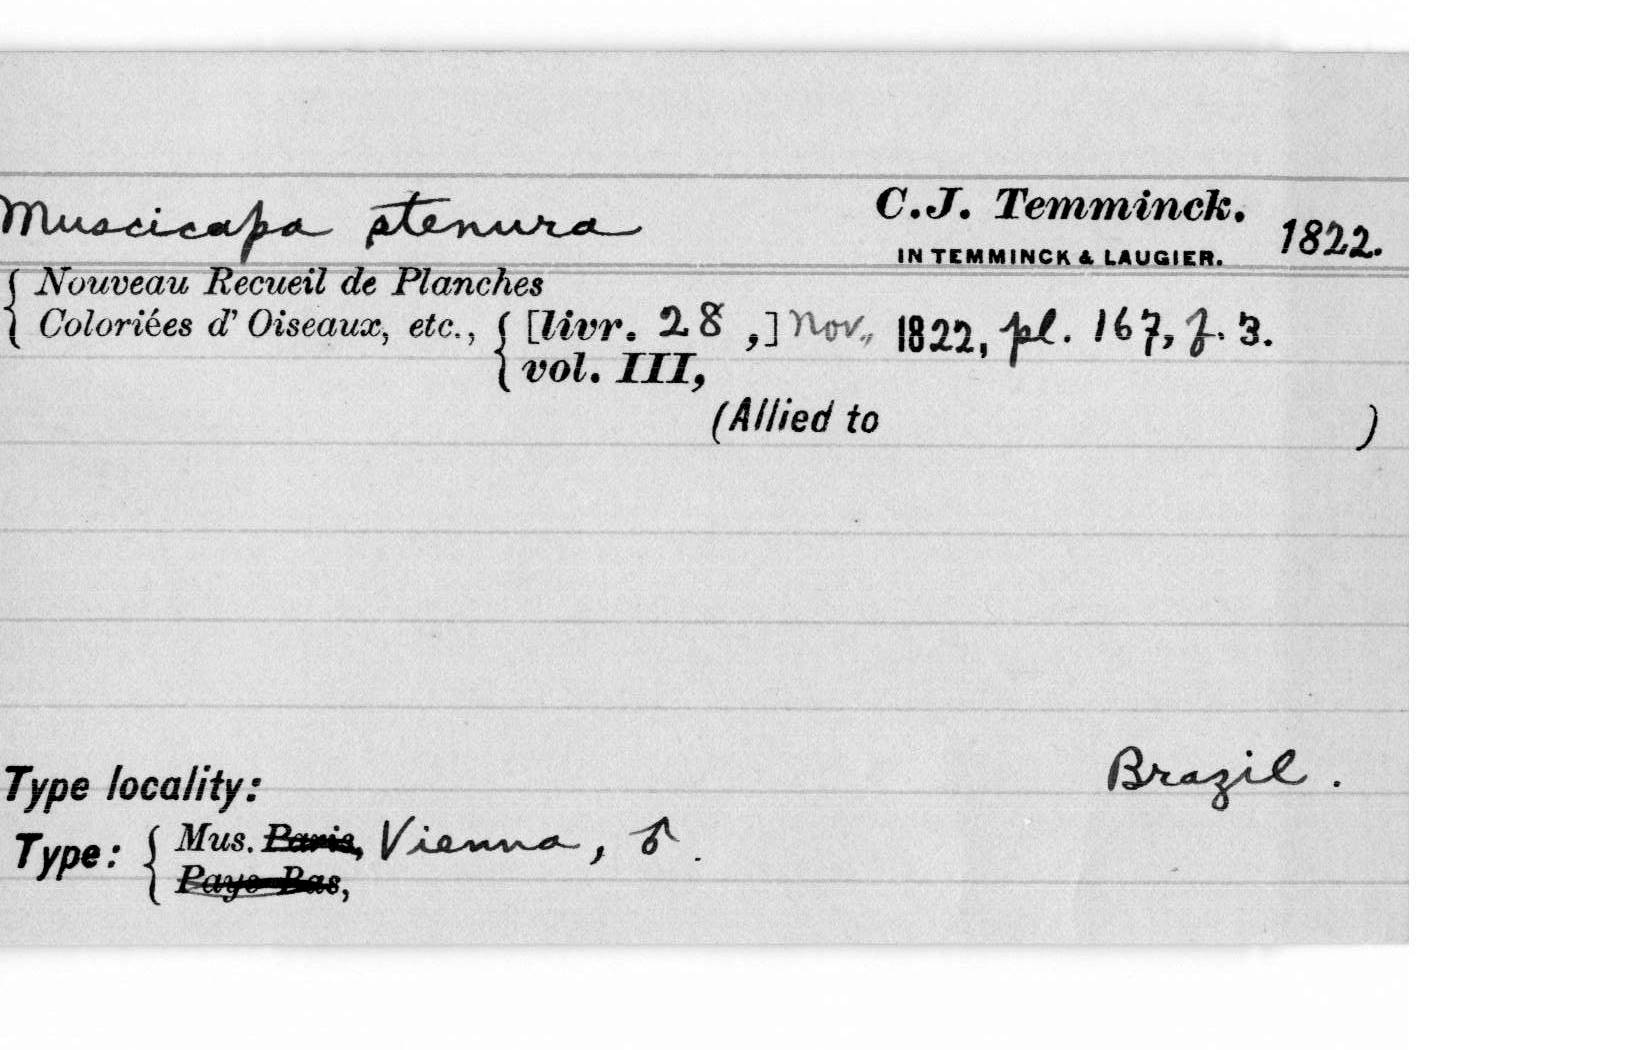 Muscicapa stenura C.J. Temminck. 1822.
IN TEMMINCK & LAUGIER.
Nouveau Recueil de Planches
Coloriées d' Oiseaux, etc., [livr. 28 ,] Nov., 1822, pl. 167, f. 3.
vol. III,
(Allied to )
Type locality: Brazil .
Type: Mus. Paris, Vienna, ♂ .
Pays-Bas,